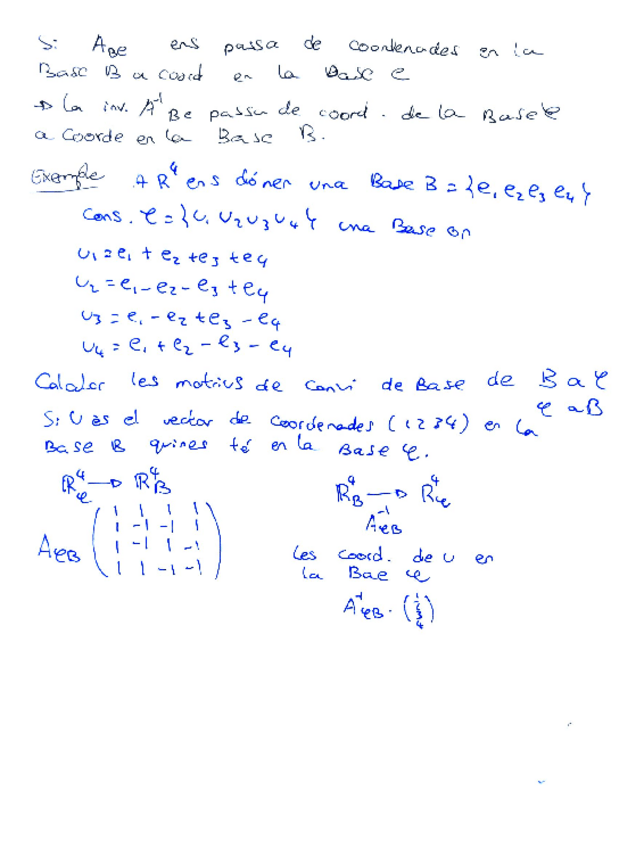 Si A_BC ens passa de coordenades en la
Base B a coord en la Base C
→ La inv. A⁻¹_BC passa de coord. de la Base C
a Coorde en la Base B.
Exemple A R⁴ ens dónen una Base B = {e₁ e₂ e₃ e₄}
Cons. C = {u₁ u₂ u₃ u₄} una Base on
u₁ = e₁ + e₂ + e₃ + e₄
u₂ = e₁ - e₂ - e₃ + e₄
u₃ = e₁ - e₂ + e₃ - e₄
u₄ = e₁ + e₂ - e₃ - e₄
Calcular les matrius de canvi de Base de B a C
C a B
Si U es el vector de coordenades (1 2 3 4) en la
Base B quines té en la Base C.
ℝ⁴_C → ℝ⁴_B
A_CB
( 1 1 1 1
1 -1 -1 1
1 -1 1 -1
1 1 -1 -1 )
ℝ⁴_B → ℝ⁴_C
A⁻¹_CB
Les coord. de U en
la Bae C
A⁻¹_CB · (1 2 3 4)